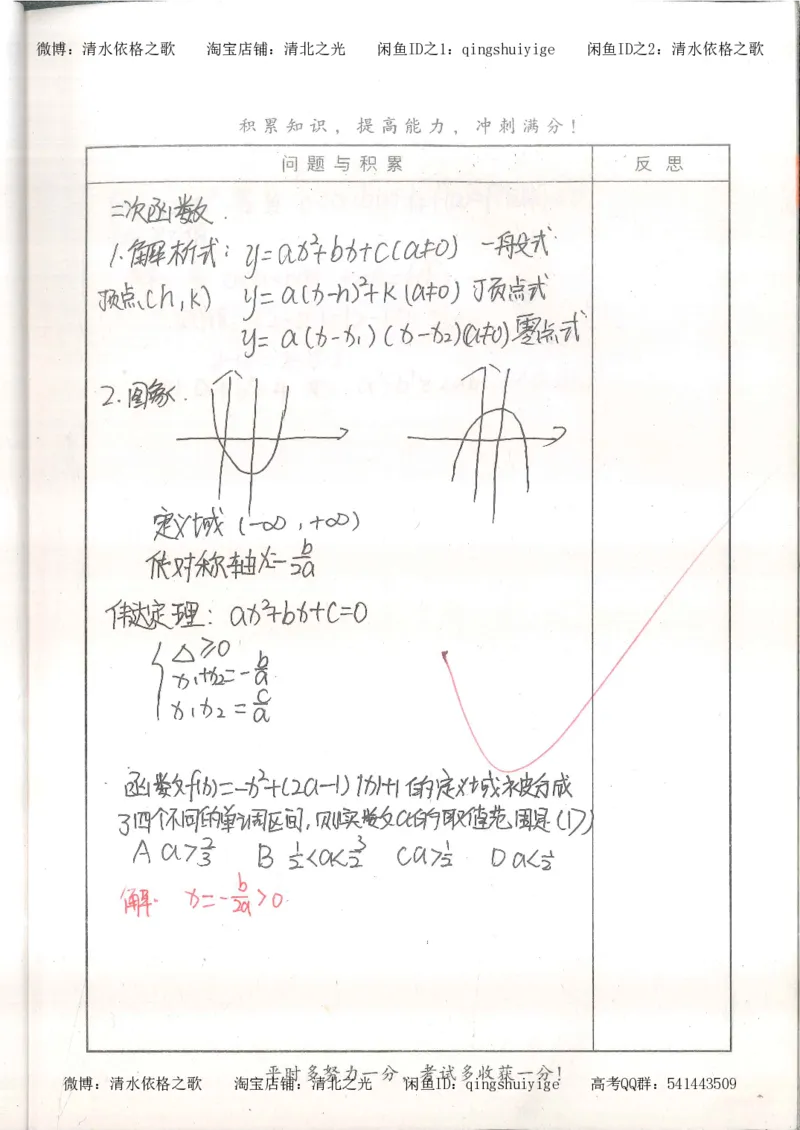 微博：清水依格之歌 淘宝店铺：清北之光 闲鱼ID之1：qingshuiyige 闲鱼ID之2：清水依格之歌
积累知识，提高能力，冲刺满分！
问题与积累 反思
二次函数.
1.解析式：y=ax²+bx+c(a≠0) 一般式
顶点(h,k) y=a(x-h)²+k(a≠0) 顶点式
y=a(x-x₁)(x-x₂)(a≠0)零点式
2.图象.
定义域(-∞,+∞)
对称轴x=-b/2a
伟达定理：ax²+bx+c=0
△≥0
x₁+x₂=-b/a
x₁x₂=c/a
函数f(x)=-x²+(2a-1)|x|+1的定义域被分成
了四个不同的单调区间,则实数a的取值范围是( )
A a>2/3 B 1/2<a<3/2 C a>1/2 D a<1/2
解. x=-b/2a>0.
平时多努力一分，考试多收获一分！
微博：清水依格之歌 淘宝店铺：清北之光 闲鱼ID：qingshuiyige 高考QQ群：541443509